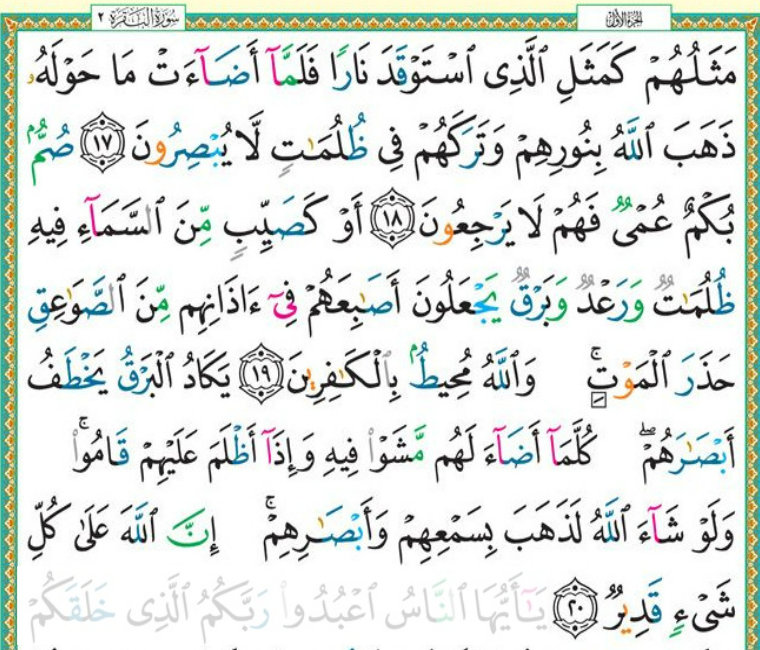 الجزء الأول
سورة البقرة ٢
مَثَلُهُمْ كَمَثَلِ ٱلَّذِى ٱسْتَوْقَدَ نَارًا فَلَمَّآ أَضَآءَتْ مَا حَوْلَهُۥ
ذَهَبَ ٱللَّهُ بِنُورِهِمْ وَتَرَكَهُمْ فِى ظُلُمَـٰتٍ لَّا يُبْصِرُونَ ١٧ صُمٌّۢ
بُكْمٌ عُمْىٌ فَهُمْ لَا يَرْجِعُونَ ١٨ أَوْ كَصَيِّبٍ مِّنَ ٱلسَّمَآءِ فِيهِ
ظُلُمَـٰتٌ وَرَعْدٌ وَبَرْقٌ يَجْعَلُونَ أَصَـٰبِعَهُمْ فِىٓ ءَاذَانِهِم مِّنَ ٱلصَّوَٰعِقِ
حَذَرَ ٱلْمَوْتِ ۚ وَٱللَّهُ مُحِيطٌۢ بِٱلْكَـٰفِرِينَ ١٩ يَكَادُ ٱلْبَرْقُ يَخْطَفُ
أَبْصَـٰرَهُمْ ۖ كُلَّمَآ أَضَآءَ لَهُم مَّشَوْا۟ فِيهِ وَإِذَآ أَظْلَمَ عَلَيْهِمْ قَامُوا۟ ۚ
وَلَوْ شَآءَ ٱللَّهُ لَذَهَبَ بِسَمْعِهِمْ وَأَبْصَـٰرِهِمْ ۚ إِنَّ ٱللَّهَ عَلَىٰ كُلِّ
شَىْءٍ قَدِيرٌ ٢٠ يَـٰٓأَيُّهَا ٱلنَّاسُ ٱعْبُدُوا۟ رَبَّكُمُ ٱلَّذِى خَلَقَكُمْ